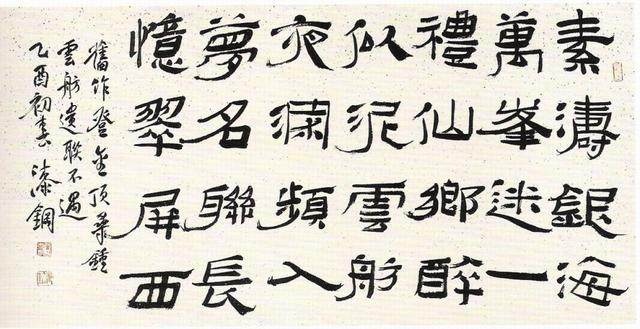 素濤銀海
萬峯迷一
禮仙鄉醉
似泥雲舫
夜瀾頻入
夢名聯長
憶翠屏西
舊作登金頂鍾
雲舫遺聯不遇
乙酉初春 漆鋼